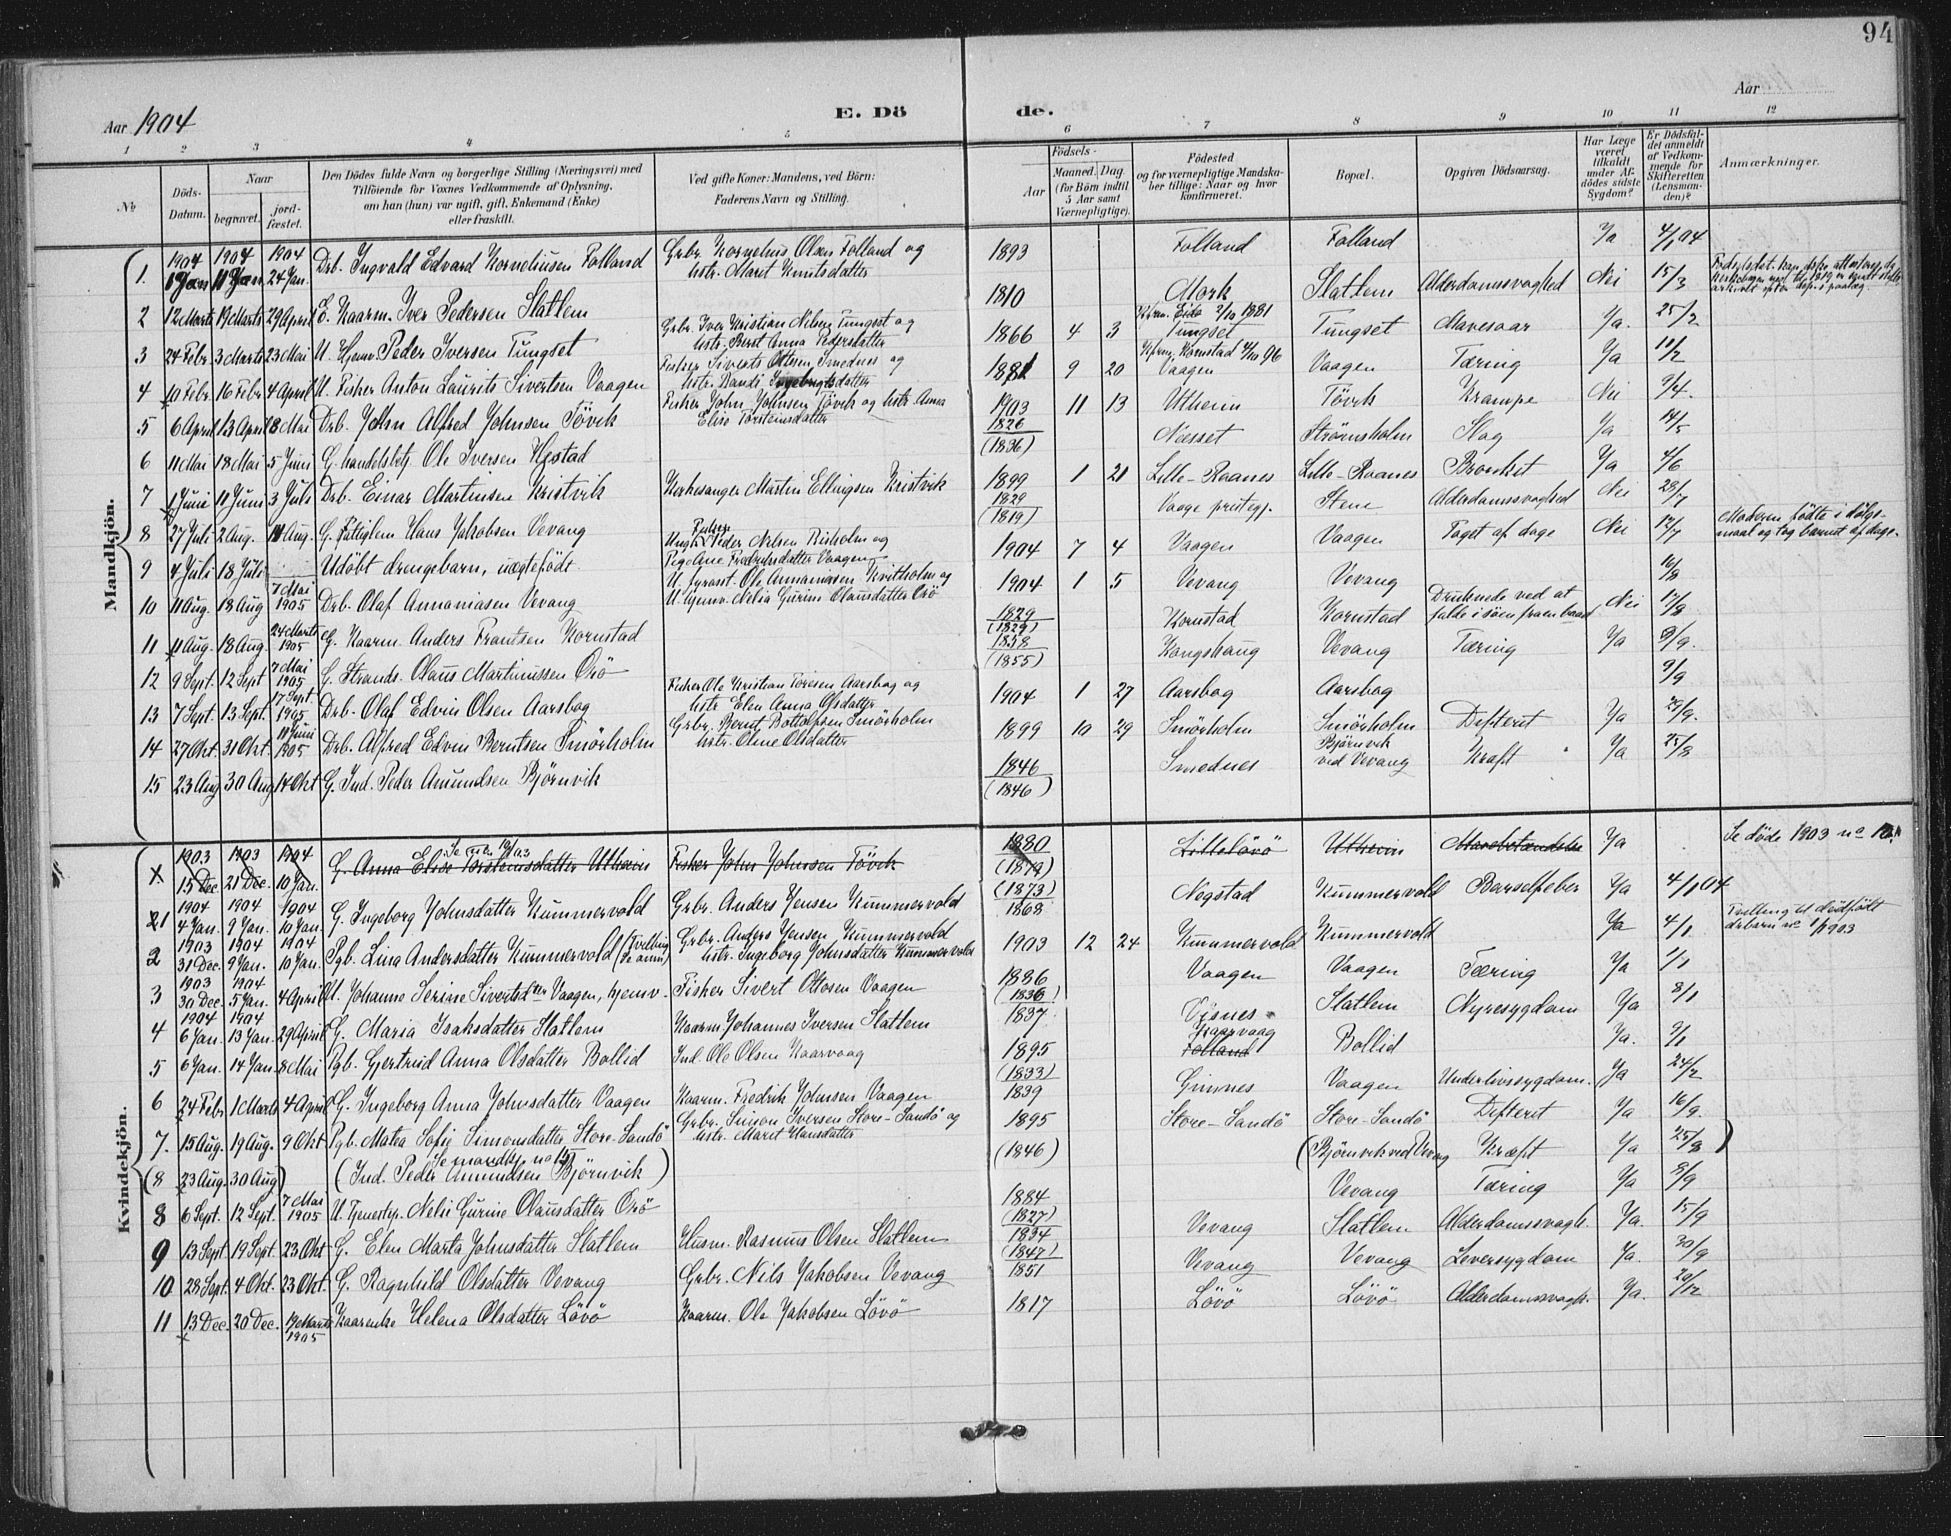 94
Aar 1904
E. Dö de.
Aar
1 2 3 4 5 6 7 8 9 10 11 12
No
Döds-Datum.
Naar
begravet.
jord-fæstet.
Den Dödes fulde Navn og borgerlige Stilling (Næringsvei) med
Tilföiende for Voxnes Vedkommende af Oplysning,
om han (hun) var ugift, gift, Enkemand (Enke)
eller fraskilt.
Ved gifte Koner: Mandens, ved Börn:
Faderens Navn og Stilling.
Födsels-
Aar
Maaned. Dag
(for Börn indtil
5 Aar samt
Værnepligtige).
Födested
og for værnepligtige Mandska-
ber tillige: Naar og hvor
konfirmeret.
Bopæl.
Opgiven Dödsaarsag.
Har Læge
været
tilkaldt
under Af-
dödes sidste
Sygdom?
Er Dödsfal-
det anmeldt
af Vedkom-
mende for
Skifteretten
(Lensman-
den)?
Anmærkninger.
Mandkjön.
1904 1904 1904
1. 1 Jan 11 Jan 24 Jan. Drb. Ingvald Edvard Korneliusen Folland Grbr. Kornelius Olsen Folland og hstr. Marit Knutsdatter 1893 Folland Folland Ja 4/1 04
2 12 Marts 19 Marts 29 April E. Kaarm. Iver Pedersen Slatlem 1810 Mork Slatlem Alderdomssvaghed Nei 15/3
3 24 Febr 3 Marts 23 Mai U. Hjemv. Peder Iversen Tungset Grbr. Iver Kristian Nilsen Tungset og hstr. Berit Anna Pedersdatter 1866 4 3 Kfrm. Eide 2/10 1881 Tungset Tungset Mavesaar Ja. 25/2
4 10 Febr. 16 Febr 4 April U. Fisker Anton Laurits Sivertsen Vaagen Fisker Siverts Ottsen Smednes og hstr. Randi Ingebrigtsdatter 1881 9 20 Kfrm. Kornstad 4/10 96 Vaagen Vaagen Tæring Ja 11/2
5 6 April 13 April 8 Mai Drb. John Alfred Johnsen Tövik Fisker John Johnsen Tövik og hstr Anna Elise Torsteinsdatter 1903 11 13 Utheim Tövik Krampe Nei 9/4.
6 11 Mai 18 Mai 5 Juni G. handelsbetj. Ole Iversen Hestad 1826 (1836) Næsset Strömsholm Slag Ja 14/5
7 1 Juni 11 Juni 3 Juli Drb. Einar Martinsen Kristvik Kirkesanger Martin Ellingsen Kristvik 1899 1 21 Lille-Raanes Lille-Raanes Bronkit Ja 4/6
8 27 Juli 2 Aug. 14 Aug. G. Fattiglem Hans Jakobsen Vevang 1829 (1819) Vaage prestegj. Stene Alderdomssvaghed Nei 28/7
9 4 Juli 18 Juli Udöbt drengebarn, uægtefödt. Ungk. Peder Nilsen Risholm og Pige Ane Fredriksdatter Vaagen 1904 7 4 Vaagen Vaagen Taget af dage Nei 12/7 Moderen födte i dölgs-
maal og tog barnet af dage.
10 11 Aug. 18 Aug 7 Mai 1905 Drb. Olaf Annaniasen Vevang U. fyrasst. Ole Annaniassen Kvitholm og U. hjemv. Nelia Gurine Olausdatter Orö 1904 1 5 Vevang Vevang 16/8
11 11 Aug. 18 Aug. 24 Marts 1905 G. Kaarm. Anders Frantsen Kornstad 1829 (1829) Kornstad Kornstad Druknede ved at falde i söen fra en baad Nei 17/8
12 9 Sept. 12 Sept 7 Mai 1905 G. Strands. Olaus Martinussen Orö 1858 (1855) Kongshaug Vevang Tæring Ja 9/9.
13 7 Sept. 13 Sept. 17 Sept. 1905 Drb. Olaf Edvin Olsen Aarsbog Fisker Ole Kristian Toresen Aarsbog og hstr Elen Anna Olsdatter 1904 1 27 Aarsbog Aarsbog 9/9
14 27 Okt. 31 Okt. 11 Juni 1905 Drb. Alfred Edvin Berntsen Smörholm Grbr. Bernt Bottolfsen Smörholm hstr. Oline Olsdatter 1899 10 29 Smörholm Smörholm Difterit Ja 29/9.
15 23 Aug 30 Aug 14 Okt G. Ind. Peder Amundsen Björnvik 1846 (1846) Smednes Björnvik ved Vevang Kræft Ja 25/8
Kvindekjön.
1903 1903 1904
1. 15 Dec 21 Dec. 10 Jan. G. Anna Elise Torsteinsdatter Utheim Fisker John Johnsen Tövik 1880 (1879) Lillelövö Utheim Mavebetændelse Ja Se döde 1903 no
1904 1904 1904
21 4 Jan. 9 Jan. 10 Jan. G. Ingeborg Johnsdatter Kummervold Grbr. Anders Jensen Kummervold (1873) 1868 Nogstad Kummervold Barselfeber Ja 4/1 04
1903 1904 1904
2 31 Dec. 9 Jan. 10 Jan. Pgb. Lina Andersdatter Kummervold (Tvilling Se anm) Grbr. Anders Jensen Kummervold hstr. Ingeborg Johnsdatter Kummervold 1903 12 24 Kummervold Kummervold Ja 4/1 Tvilling til dödfödt
1903 1904
3 30 Dec. 5 Jan. 4 April U. Johanne Serine Sivertsdtr Vaagen, hjemv. Fisker Sivert Ottosen Vaagen 1886 Vaagen Vaagen Tæring Ja 1/1
1904 1904
4 6 Jan. 13 Jan. 29 April G. Maria Isaksdatter Slatlem Kaarm. Johannes Iversen Slatlem (1836) 1837 Visnes Slatlem Nyresygdom Ja 8/1
5 6 Jan. 14 Jan. 8 Mai Pgb. Gjertrud Anna Olsdatter Bollid Ind. Ole Olsen Kaarvaag 1895 Kaarvaag Folland Bollid Ja. 9/1
6 24 Febr 1 Marts 4 April G. Ingeborg Anna Johnsdatter Vaagen Kaarm. Fredrik Johnsen Vaagen (1833) 1839 Gimnes Vaagen Underlivssygdom. Ja 24/2
7. 15 Aug. 19 Aug. 9 Okt Pgb. Matea Sofie Simonsdatter Store-Sandö Grbr. Simon Iversen Store-Sandö og hstr. Marit Hansdatter 1895 Store-Sandö Store-Sandö Difterit Ja 16/9.
(8 23 Aug. 30 Aug) Se mandkj. no 15 (Ind. Peder Amundsen Björnvik) (1846) (Björnvik ved Vevang Kræft Ja 25/8)
8 6 Sept. 12 Sept. 7 Mai 1905 U. Tjenestep. Nelie Gurine Olausdatter Orö 1884 Vevang Tæring Ja 8/9
9 13 Sept 19 Sept. 23 Okt G. Elen Marta Johnsdatter Slatlem Husm. Rasmus Olsen Slatlem (1827) 1834 Vevang Slatlem Alderdomssvagh. Ja. 15/9
10 28 Sept. 4 Okt. 23 Okt. G. Ragnhild Olsdatter Vevang Grbr. Nils Jakobsen Vevang (1847) 1851 Vevang Vevang Leversygdom Ja. 30/9
11 13 Dec. 20 Dec. 19 Marts 1905 Kaarenke Helena Olsdatter Lövö Kaarm. Ole Jakobsen Lövö 1817 Lövö Lövö Alderdomssvagh. Ja. 20/12